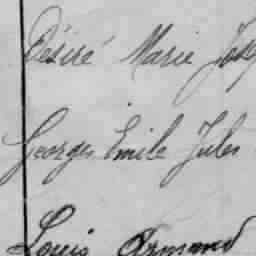 Désiré Marie Jose
Georges Emile Jules
Louis Armand